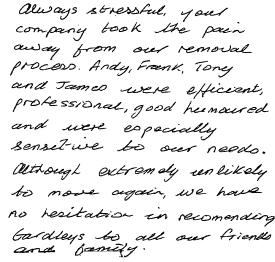 Always stressful, your
company took the pain
away from our removal
process. Andy, Frank, Tony
and James were efficient,
professional, good humoured
and were especially
sensitive to our needs.
Although extremely unlikely
to move again, we have
no hesitation in recomending
Eardleys to all our friends
and family.